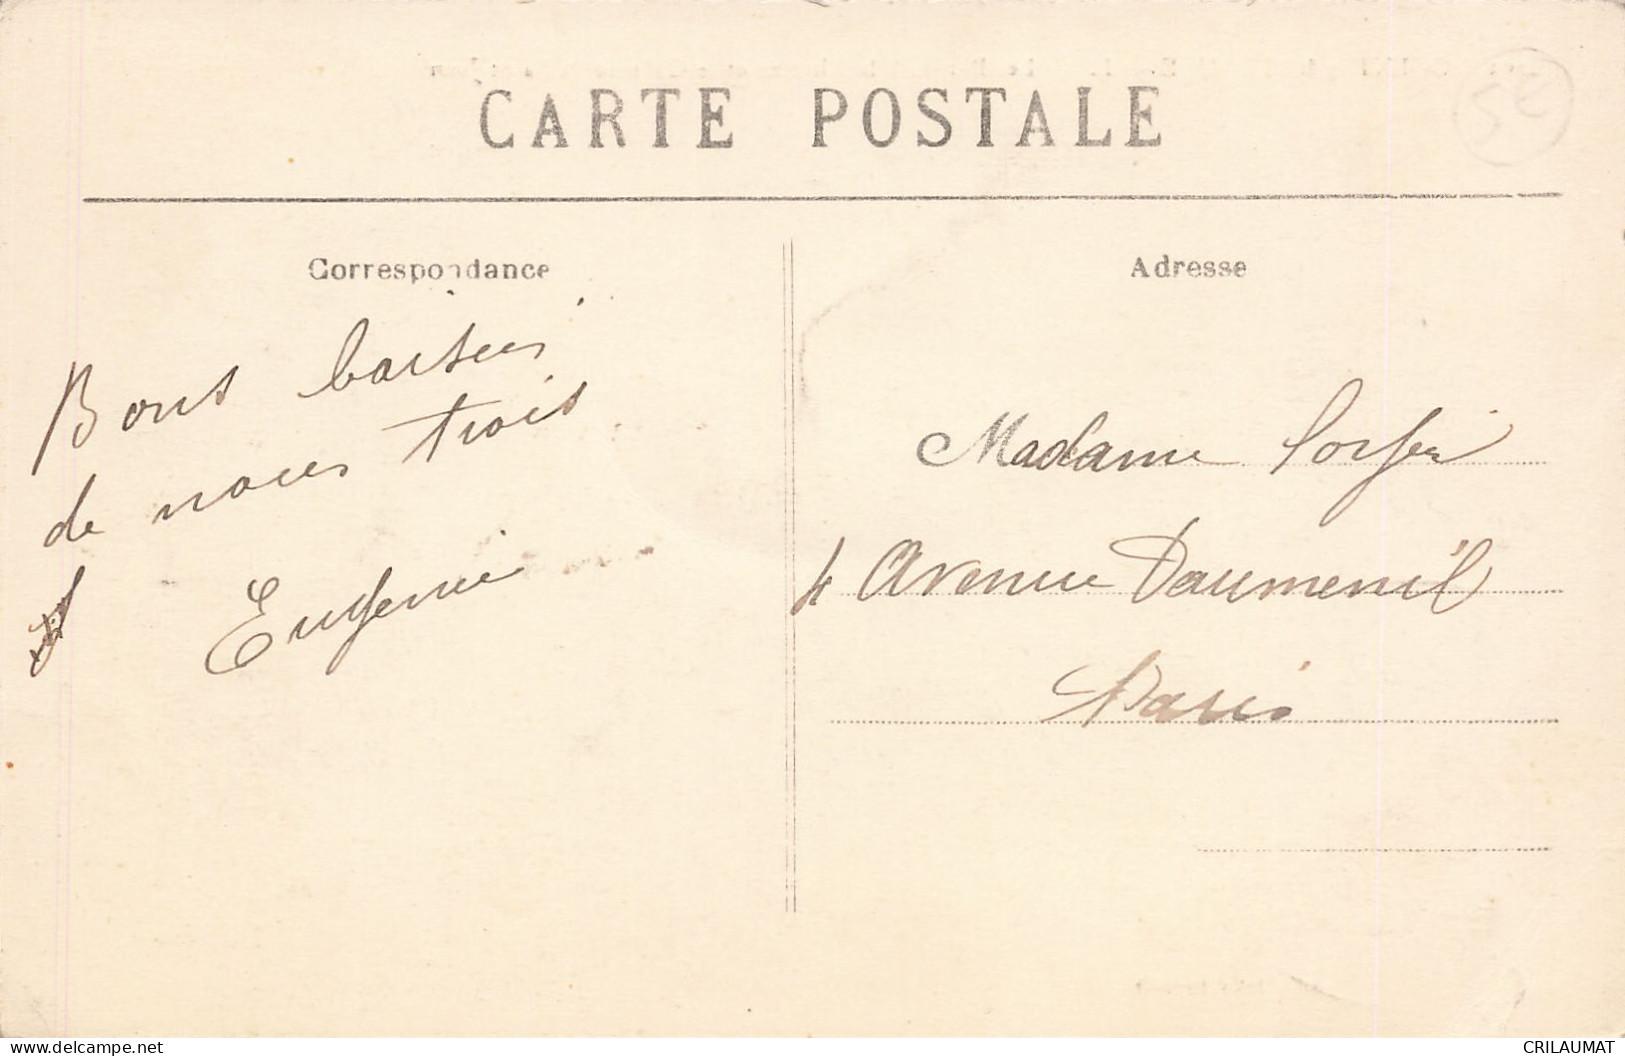 CARTE POSTALE
Correspondance
Adresse
Bons baisers
de nous trois
Eugenie
Madame
4 Avenue Daumenil
Paris
www.delcampe.net
CRILAUMAT